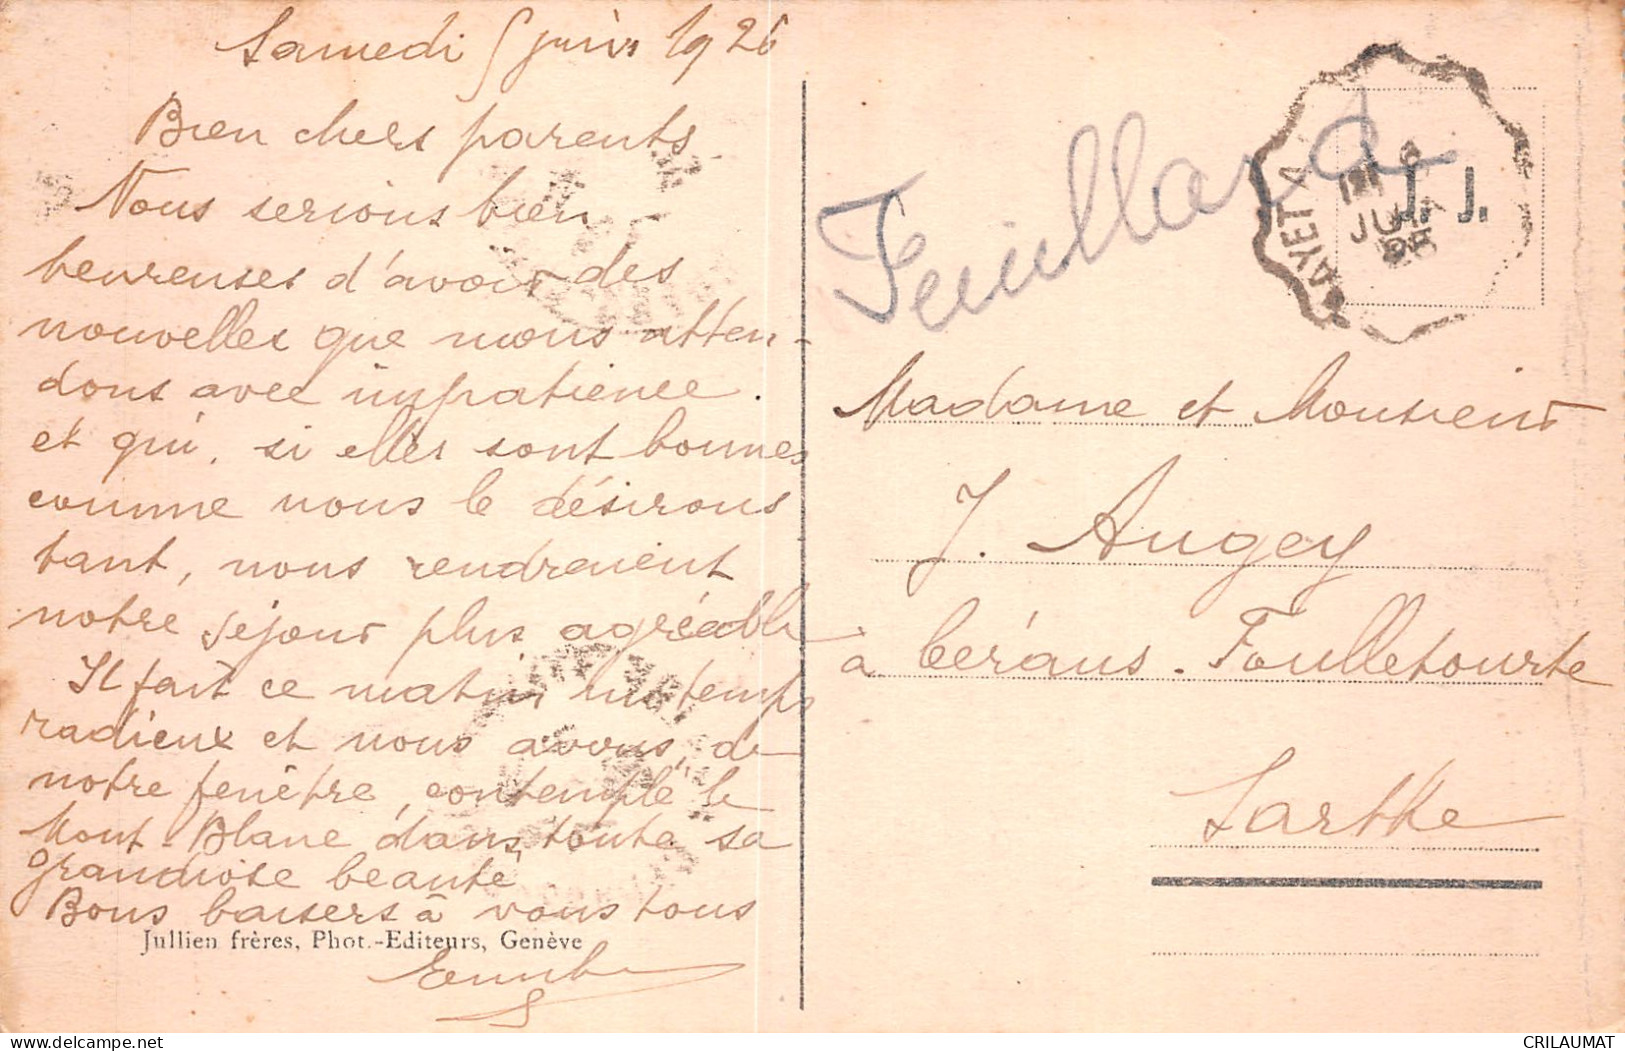 Samedi 5 juin 1926
Bien chers parents
Nous serions bien
heureuses d'avoir des
nouvelles que nous atten-
dons avec impatience.
et qui, si elles sont bonnes
comme nous le désirons
tant, nous rendraient
notre séjour plus agréable
Il fait ce matin un temps
radieux et nous avons, de
notre fenêtre, contemplé le
Mont-Blanc dans toute sa
grandiose beauté
Bons baisers à vous tous
Jullien frères, Phot.-Editeurs, Genève
Feuillard
J. J.
JUIN
Madame et Monsieur
J. Augey
à Cérans-Foulletourte
Sarthe
CRILAUMAT